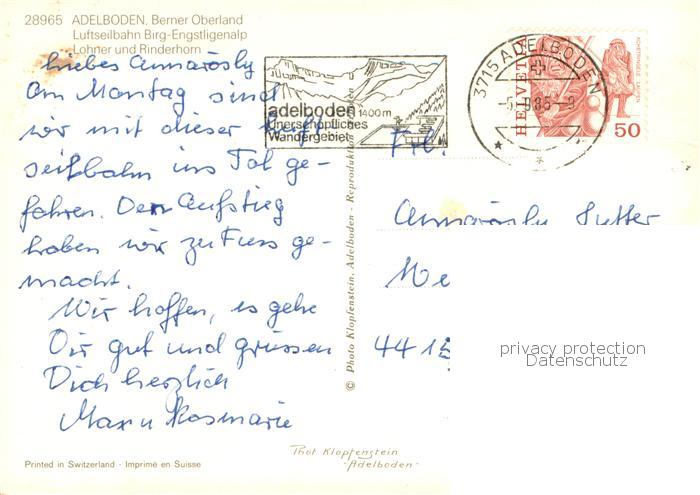 28965 ADELBODEN, Berner Oberland
Luftseilbahn Birg-Engstligenalp
Lohner und Rinderhorn
liebes Annarösly
Am Montag sind
wir mit dieser Luft-
seilbahn ins Tal ge-
fahren. Den Aufstieg
haben wir zu Fuss ge-
macht.
Wir hoffen, es gehe
Dir gut und grüssen
Dich herzlich
Max u Rosmarie
Printed in Switzerland - Imprimé en Suisse
adelboden 1400 m
Unerschöpfliches
Wandergebiet
3715 ADELBODEN
HELVETIA
ACHETRINGELE LAUPEN
50
Frl.
Annarösly Sutter
Me
4415
© Photo Klopfenstein, Adelboden - Reproduktion
Phot. Klopfenstein
-Adelboden-
privacy protection
Datenschutz